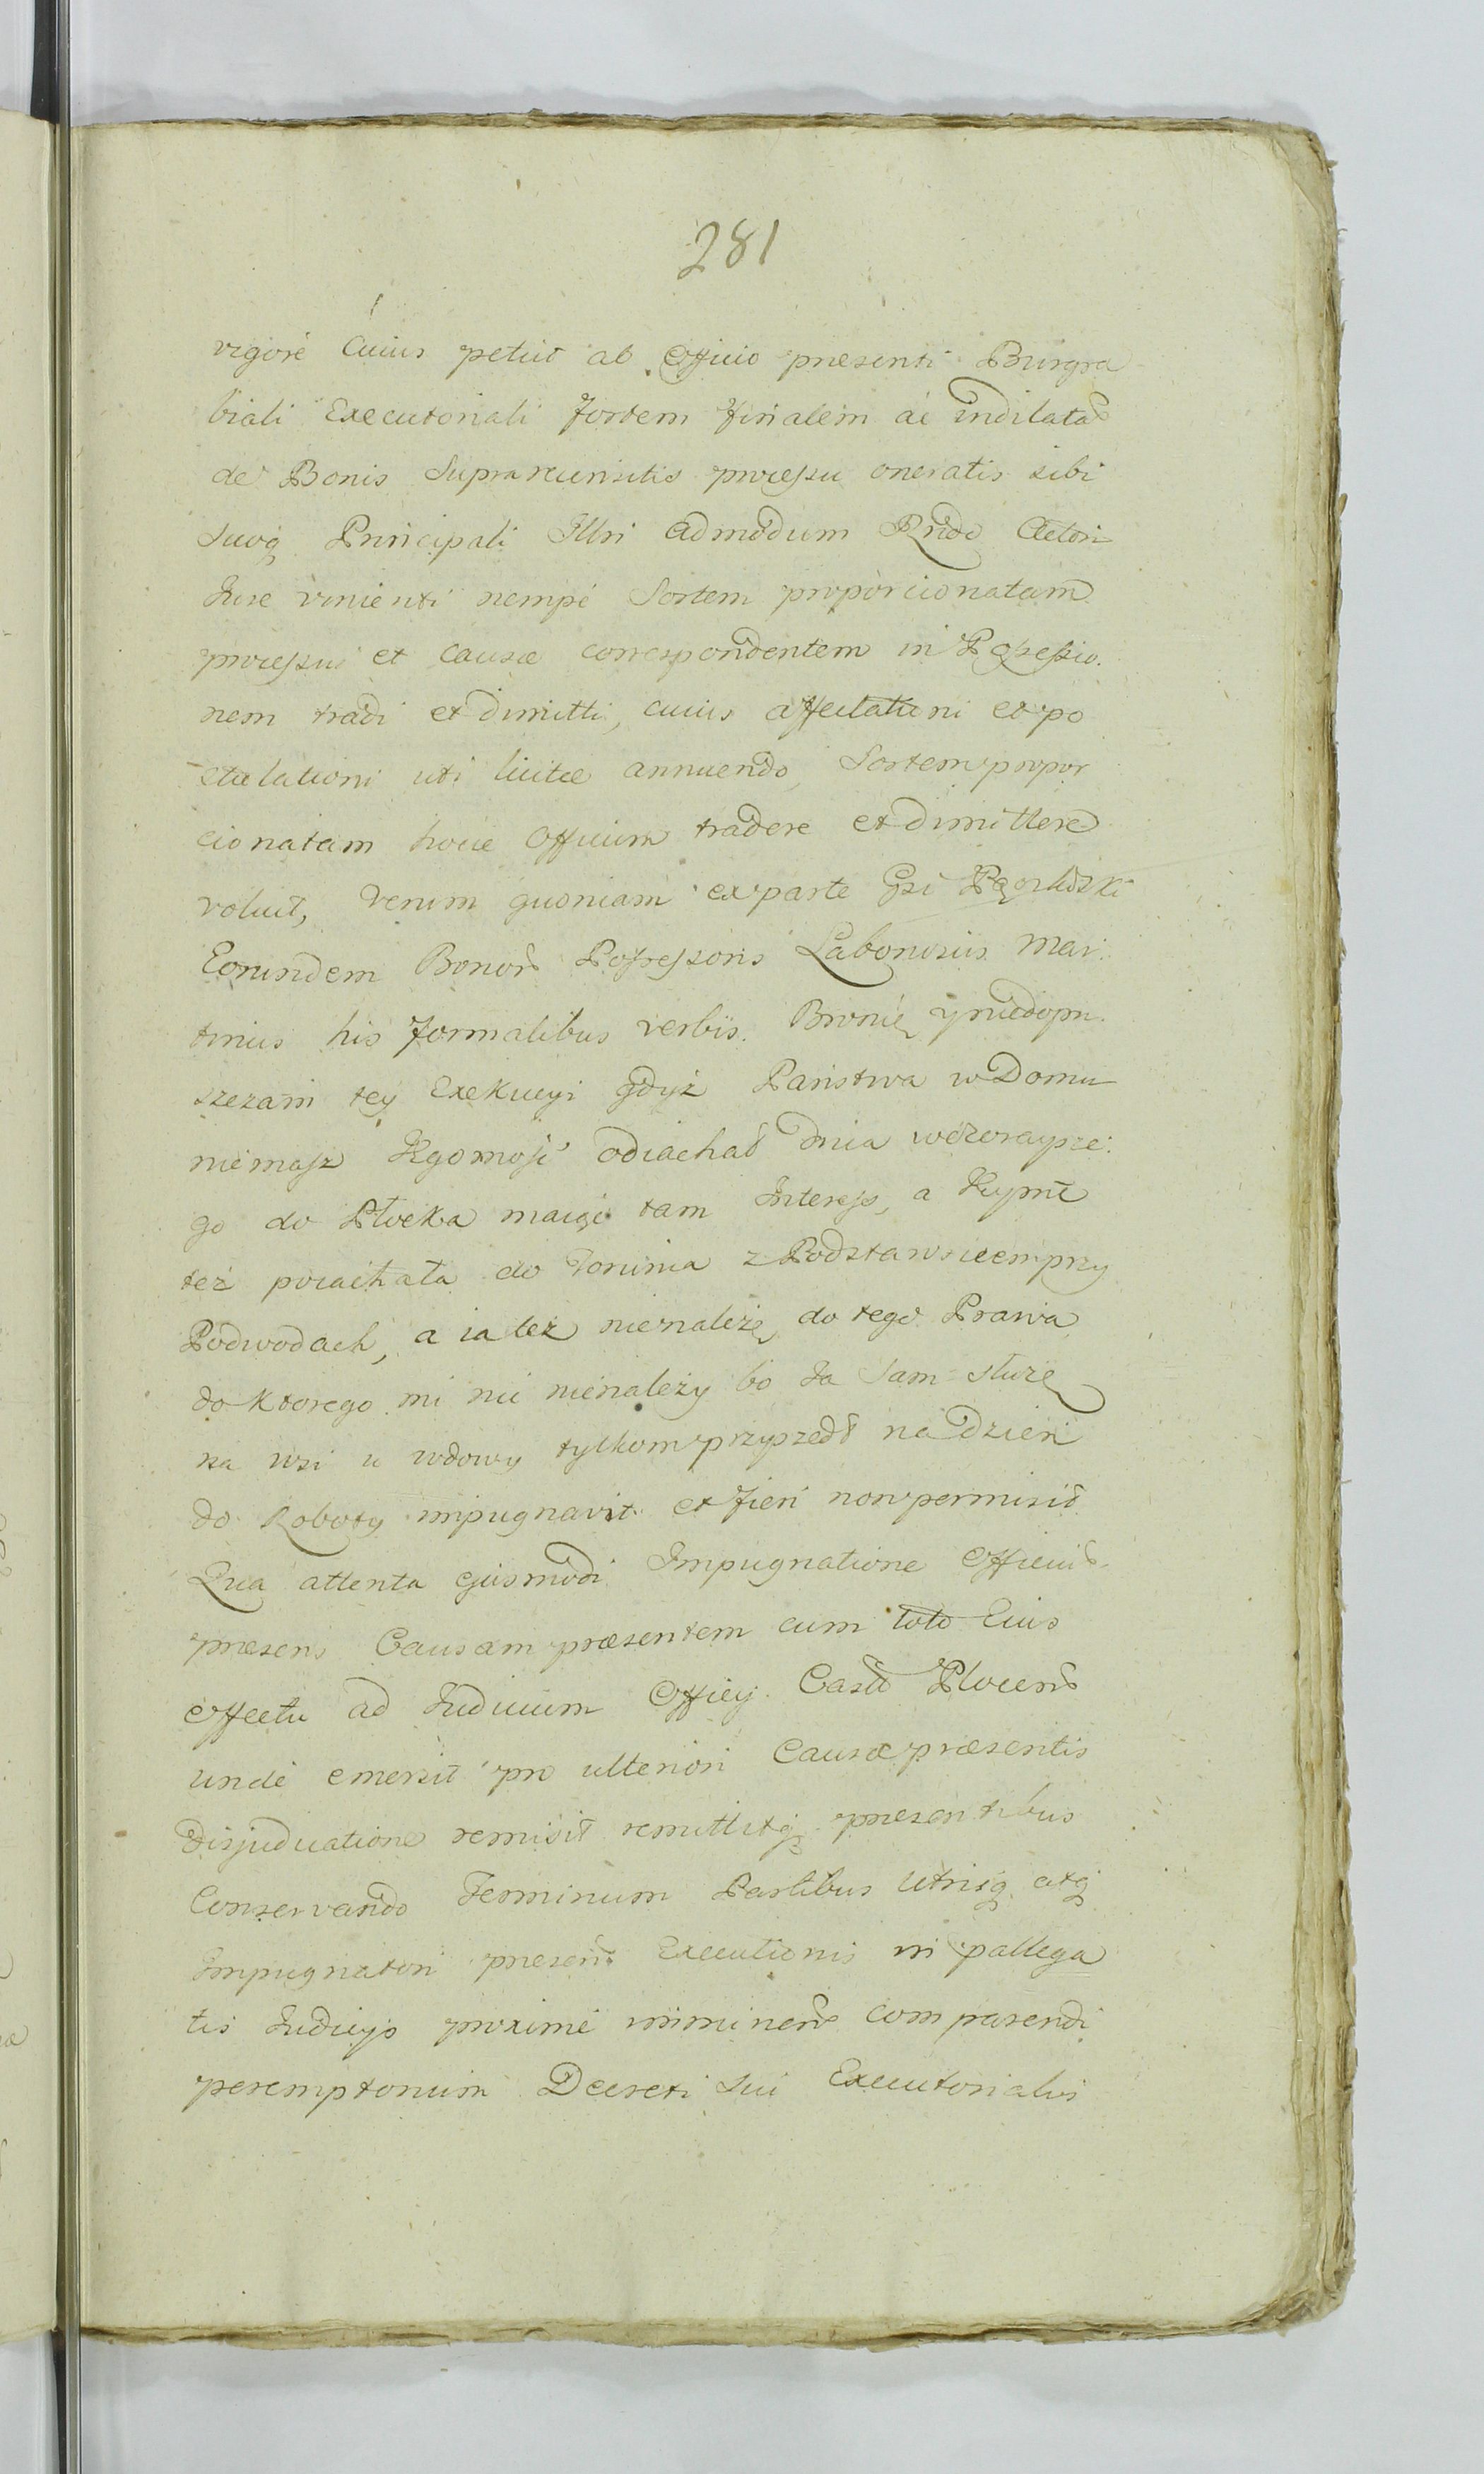 281
vigore Cuius petiit ab Officio præsenti Burgra
biali Executoriali Sortem finalem ac indilatã
de Bonis Suprarecensitis processu oneratis sibi
suoq Principali Illri admodum Rndo Actori
Jure vinienti nempe Sortem proporcionatam
processui et causæ correspondentem in Possessio.
nem tradi et dimitti, cuius affectationi et po
stulationi uti licitæ annuendo, Sortem propor
cionatam hocce Officium tradere et dimittere
voluit, verum quoniam ex parte Gsi
Eorundem Bonorũ Possessoris Laboriosus Mar.
tinus his formalibus verbis. Bronię y niedopu.
szczam tey Exekucyi gdyż Państwa w Domu
niemasz Jegomość odiachał Dnia wczoraysze.
go do Płocka maiąc tam Interess, a Jeymć
też poiachała do Torunia z Podstawscem przy
Podwodach, a ia też nienależę do tego Prawa
do ktorego mi nic nienależy bo Ja Sam służę
na wsi u wdowy tylkom przyszedł na Dzień
do Roboty impugnavit et fieri non permisit
Qua attenta ejusmodi Impugnatione Officiũ
præsens Causam præsentem cum toto Eius
effectu ad Judicium Officij Castr Plocens
unde emersit pro ulteriori Causæ præsentis
Disjudicatione remisit remittitq præsentibus
Conservando Terminum Partibus Utrisq atq
Impugnatori præsent Executionis in pallega
tis Judicijs proxime imminent comparendi
peremptorium Decreti sui Executorialis